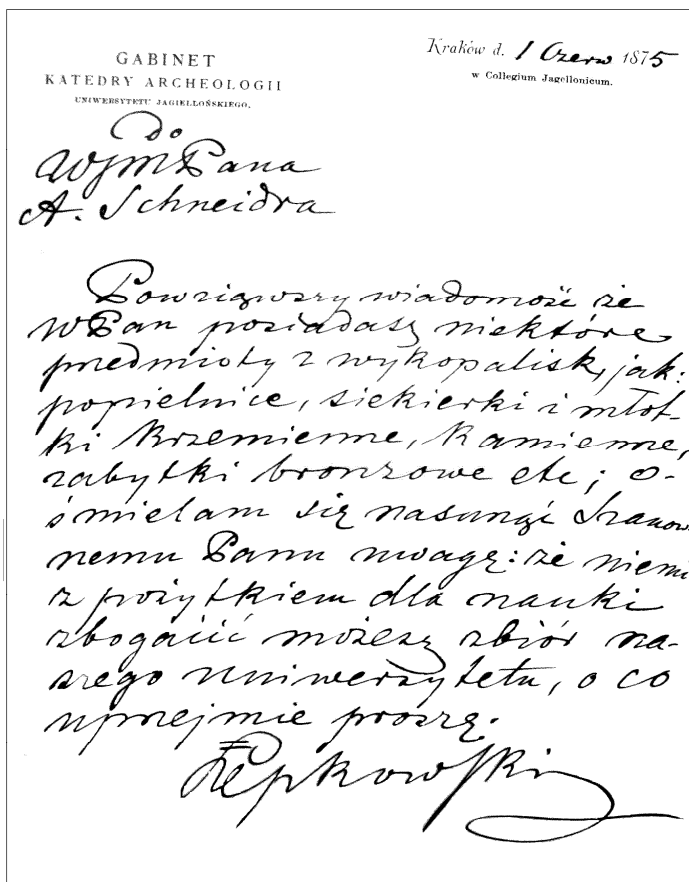 GABINET
KATEDRY ARCHEOLOGII
UNIWERSYTETU JAGIELLOŃSKIEGO.
Kraków d. 1 Czerw 1875
w Collegium Jagellonicum.
do
WJMPana
A. Schneidra
Powziąwszy wiadomość że
WPan posiadasz niektóre
przedmioty z wykopalisk, jak:
popielnice, siekierki i młot-
ki krzemienne, kamienne,
zabytki bronzowe etc; o-
śmielam się nasunąć Szanow-
nemu Panu uwagę: że niemi
z pożytkiem dla nauki
zbogacić możesz zbiór na-
szego Uniwersytetu, o co
uprzejmie proszę.
Łepkowski